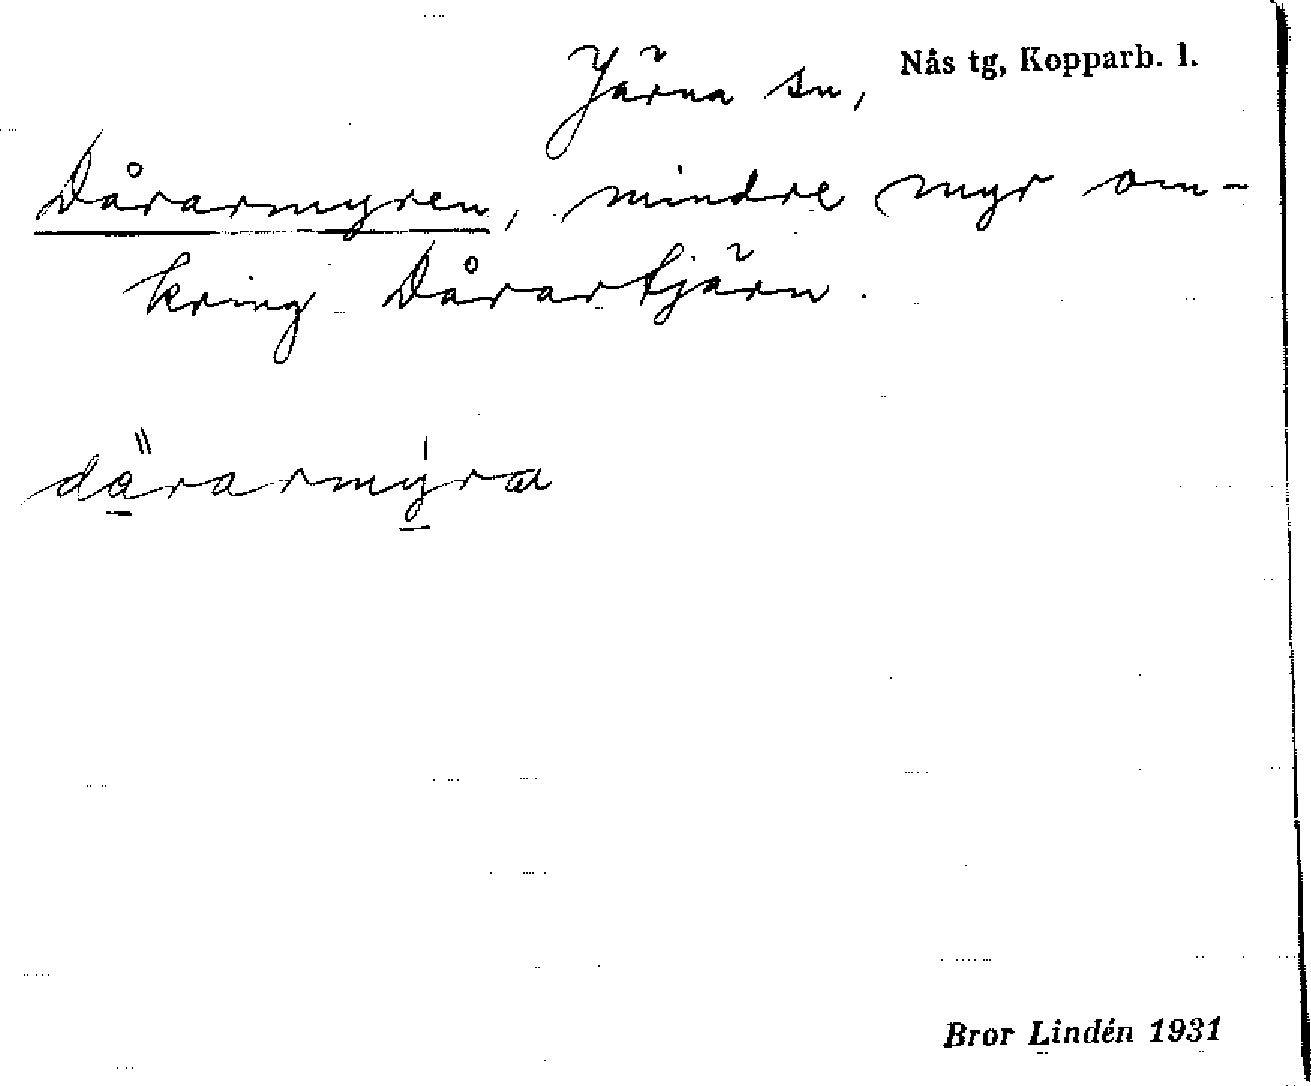 Järna sn, Nås tg, Kopparb. l.
Dårarmyren, mindre myr om-
kring Dårartjärn.
dårarmyra
Bror Lindén 1931